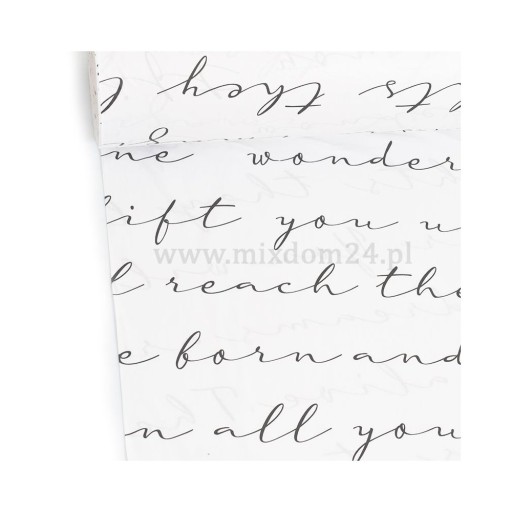 they
ne wonder
ift you
www.mixdom24.pl
reach the
e born and
n all you